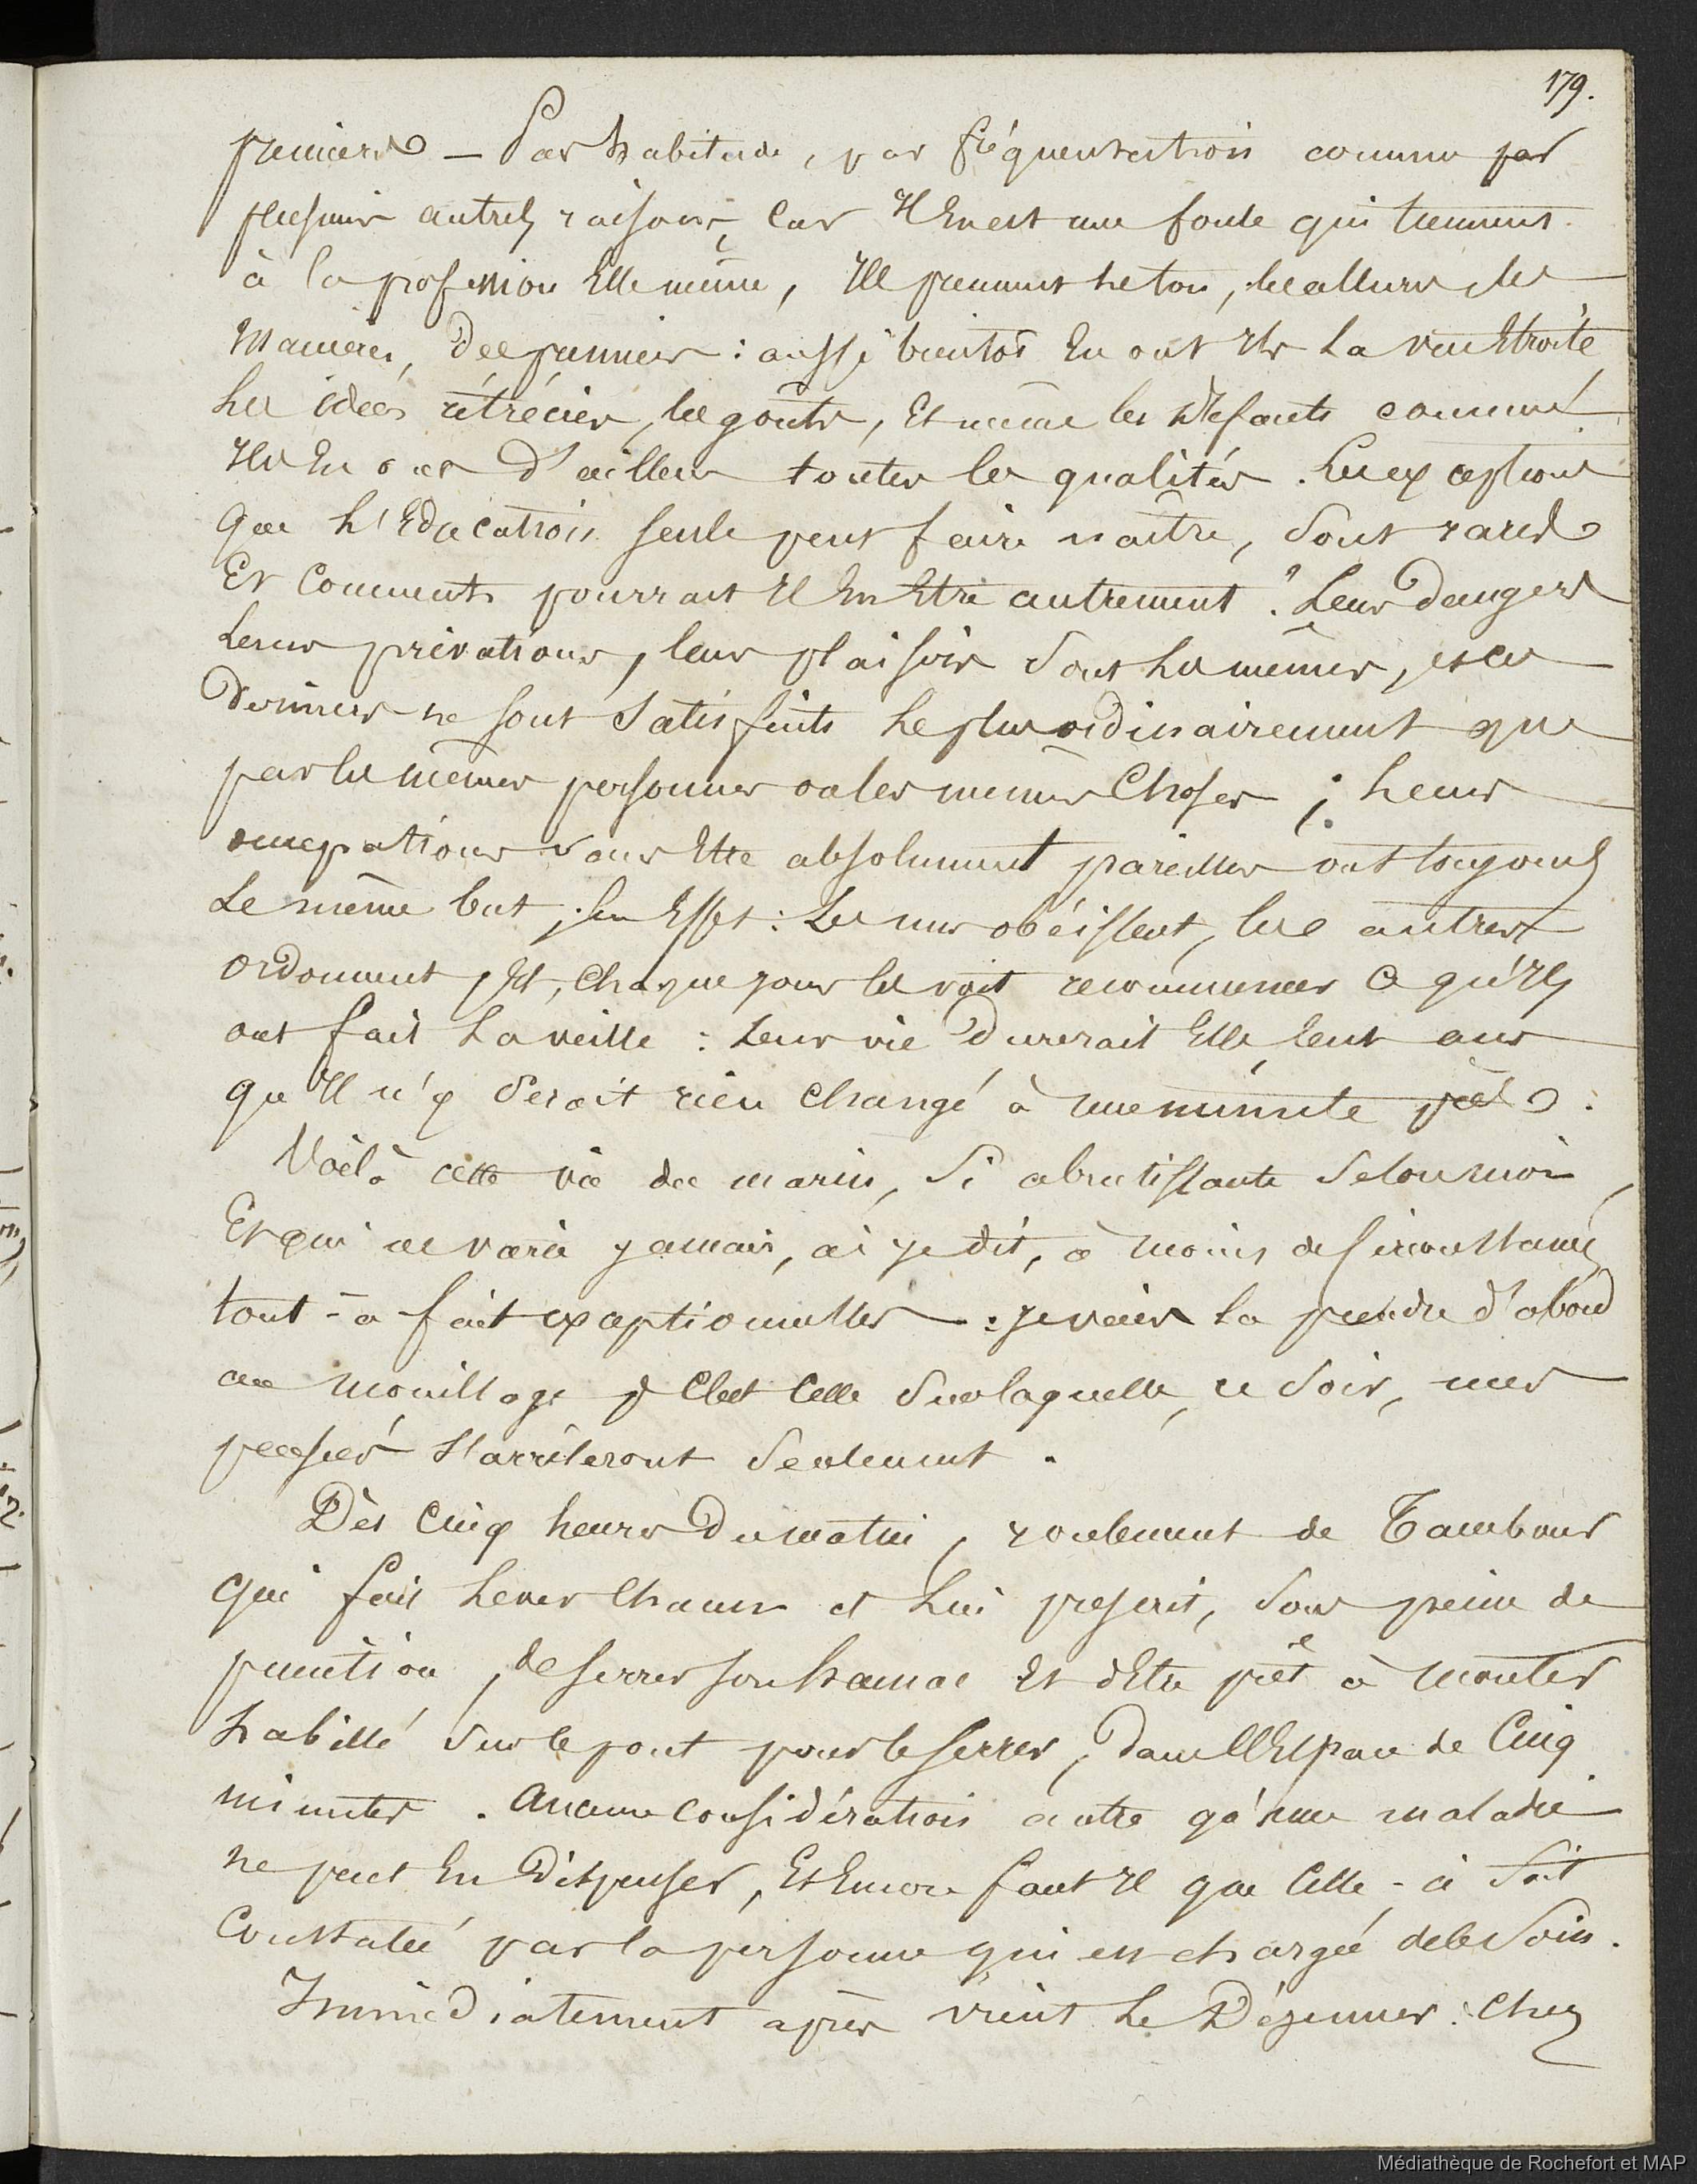 179.
premiers — Par habitude, par fréquentation comme par
plusieurs autres raisons, Car Il En est une foule qui tiennent
à la profession Elle même, Ils prennent le ton, les allures, les
Manières, des premiers : aussi bientôt En ont Ils La vue Etroite
Les idées rétrécies, les goûts, Et même les défauts comme
Ils En ont d'ailleurs toutes les qualités. Les exceptions
que L'Education seule peut faire naître, Sont rares
Et Comment pourrait Il En Etre autrement ? Leurs dangers
Leurs privations, leurs plaisirs Sont Les mêmes, et ces
Derniers ne sont Satisfaits Le plus ordinairement que
par les mêmes personnes ou les mêmes Choses ; Leurs
occupations sans Etre absolument pareilles ont toujours
Le même but ; En Effet : Les uns obéissent, les autres
ordonnent, Et, Chaque jour les voit recommencer Ce qu'Ils
ont fait La veille : Leur vie Durerait Elle Cent ans
qu'Il n'y Serait rien Changé à une minute près.
Voilà cette vie du marin, Si abrutissante Selon moi,
Et qui ne varie jamais, ai je dit, à moins de Circonstances
tout-à-fait exceptionnelles : je vais la prendre d'abord
au mouillage, C'est Celle Sur laquelle, ce Soir, mes
pensées S'arrêteront Seulement.
Dès Cinq heures Du matin, roulement de Tambour
qui fait Lever Chacun et Lui prescrit, Sous peine de
punition, de serrer son hamac Et d'Etre prêt à monter
habillé Sur le pont pour le serrer, Dans l'Espace de Cinq
minutes. Aucune Considération autre qu'une maladie
ne peut En Dispenser, Et Encore faut Il que Celle-ci Soit
Constatée par la personne qui est chargée de le Soin.
Immédiatement après vient Le Déjeuner : Chez
Médiathèque de Rochefort et MAP